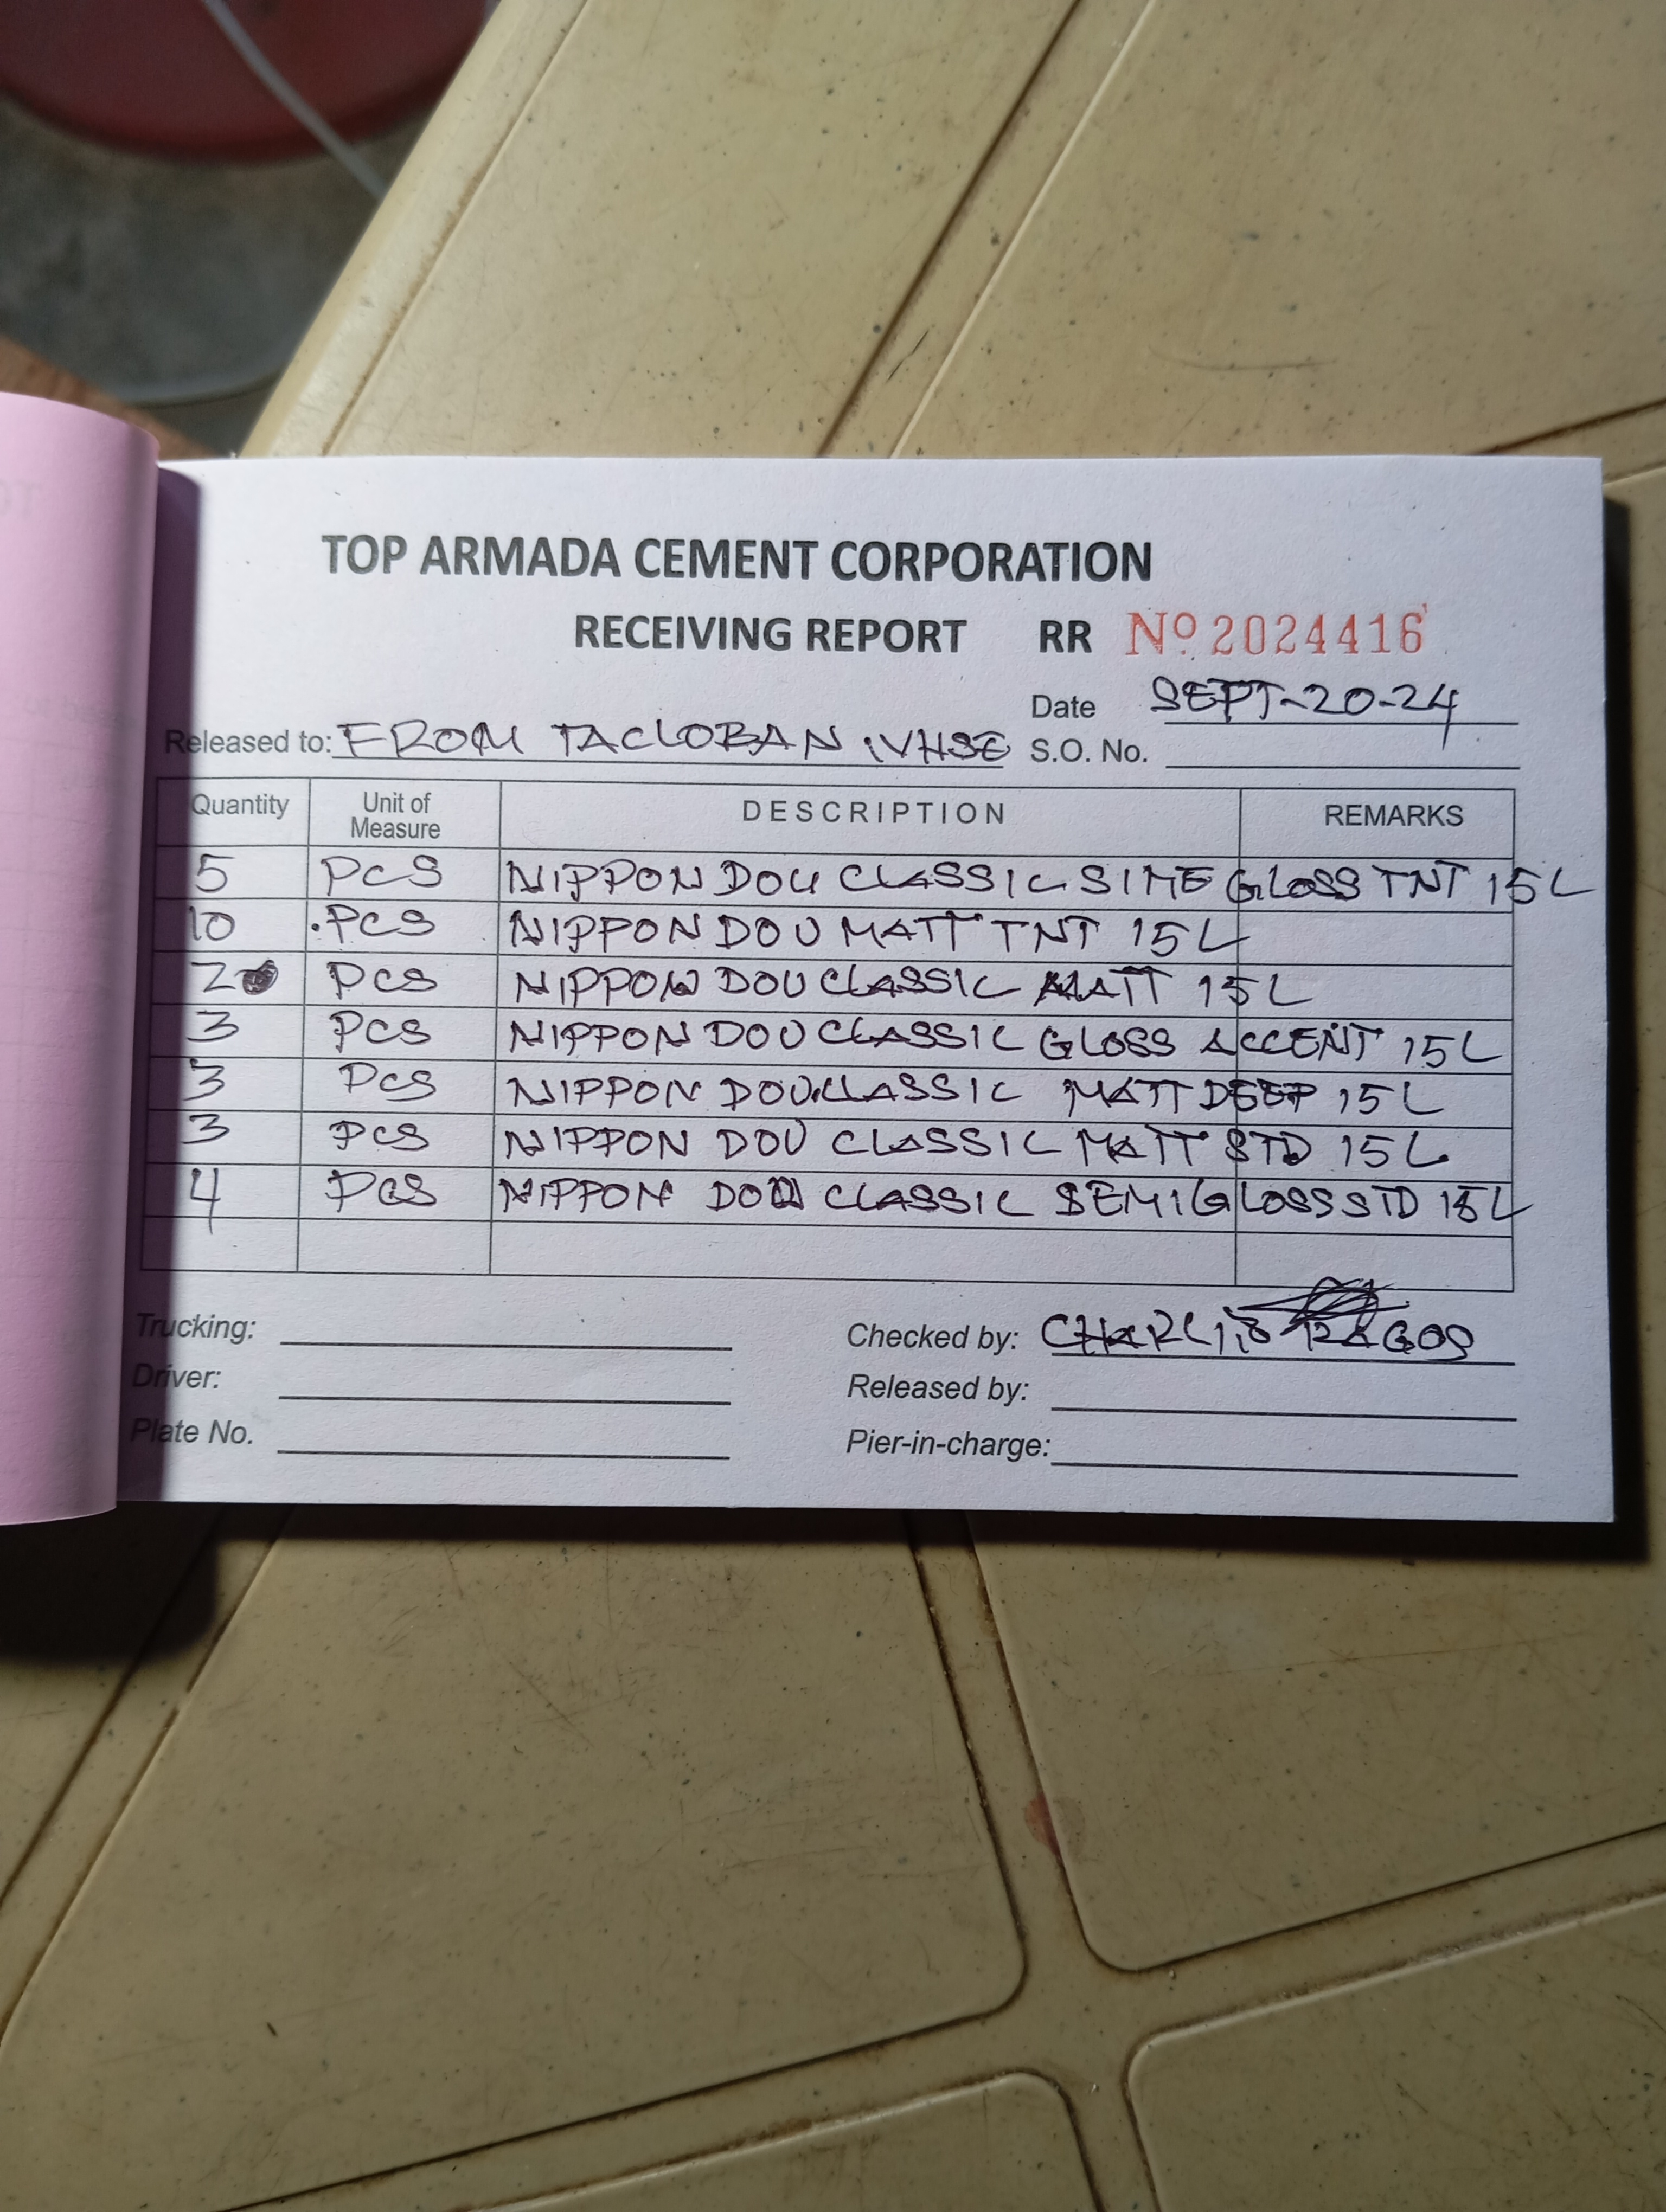 TOP ARMADA CEMENT CORPORATION
RECEIVING REPORT RR Nº 2024416
Date SEPT-20-24
Released to: FROM TACLOBAN WHSE S.O. No.
Quantity Unit of Measure DESCRIPTION REMARKS
5 PCS NIPPON DOU CLASSIC SIME GLOSS TNT 15L
10 PCS NIPPON DOU MATT TNT 15L
2 PCS NIPPON DOU CLASSIC MATT 15L
3 PCS NIPPON DOU CLASSIC GLOSS ACCENT 15L
3 PCS NIPPON DOU CLASSIC MATT DEEP 15L
3 PCS NIPPON DOU CLASSIC MATT STD 15L
4 PCS NIPPON DOU CLASSIC SEMI GLOSS STD 15L
Trucking: Checked by: CHARLIE RAGOS
Driver: Released by:
Plate No. Pier-in-charge: